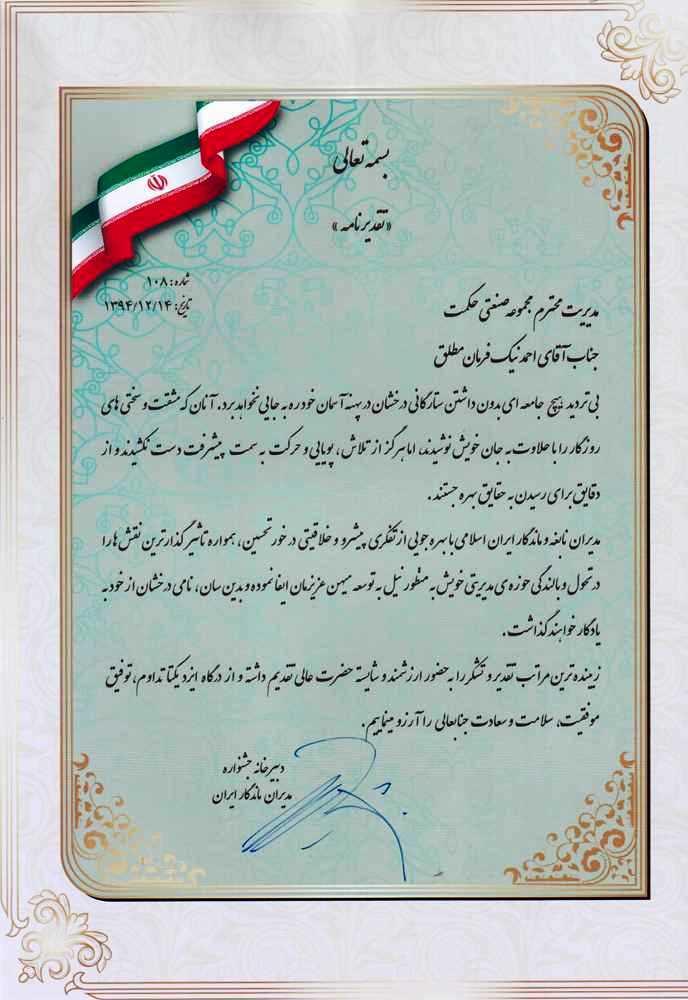 بسمه تعالی
«تقدیرنامه»
شماره: ۱۰۸
تاریخ: ۱۳۹۴/۱۲/۱۴
مدیریت محترم مجموعه صنعتی حکمت
جناب آقای احمد نیک فرمان مطلق
بی تردید هیچ جامعه ای بدون داشتن ستارگانی درخشان در پهنه آسمان خود ره به جایی نخواهد برد. آنان که مشقت و سختی های
روزگار را با حلاوت به جان خویش نوشیدند، اما هرگز از تلاش، پویایی و حرکت به سمت پیشرفت دست نکشیدند و از
دقایق برای رسیدن به حقایق بهره جستند.
مدیران نابغه و ماندگار ایران اسلامی با بهره جویی از تفکری پیشرو و خلاقیتی در خور تحسین، همواره تاثیرگذارترین نقش ها را
در تحول و بالندگی حوزه ی مدیریتی خویش به منظور نیل به توسعه میهن عزیزمان ایفا نموده و بدین سان، نامی درخشان از خود به
یادگار خواهند گذاشت.
زیبنده ترین مراتب تقدیر و تشکر را به حضور ارزشمند و شایسته حضرت عالی تقدیم داشته و از درگاه ایزد یکتا تداوم، توفیق
موفقیت، سلامت و سعادت جنابعالی را آرزو مینماییم.
دبیرخانه جشنواره
مدیران ماندگار ایران